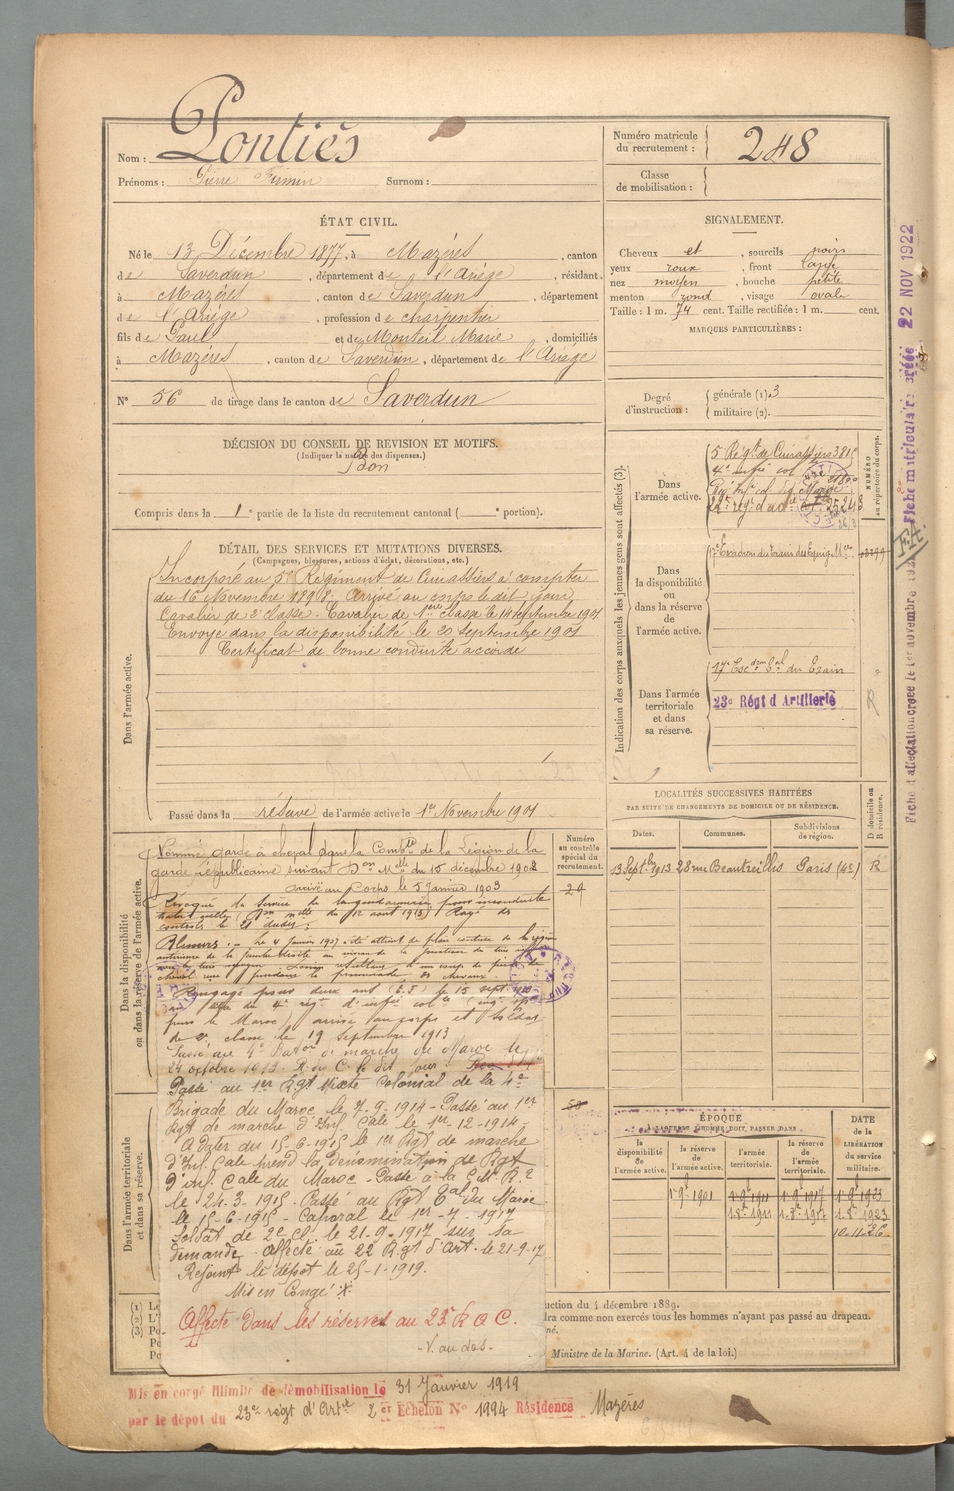 Nom : Pontiès
Prénoms : Pierre Firmin Surnom :
Numéro matricule du recrutement : 248
Classe de mobilisation :
ÉTAT CIVIL.
Né le 13 Décembre 1877, à Mazéres, canton
de Saverdun, département de l'Ariége, résidant
à Mazéres, canton de Saverdun, département
de l'Ariége, profession de charpentier
fils de Paul et de Monteil Marie, domiciliés
à Mazéres, canton de Saverdun, département de l'Ariége
N° 56 de tirage dans le canton de Saverdun
SIGNALEMENT.
Cheveux et, sourcils noirs
yeux roux, front large
nez moyen, bouche petite
menton rond, visage ovale
Taille : 1 m. 74 cent. Taille rectifiée : 1 m. cent.
MARQUES PARTICULIÈRES :
Degré d'instruction : générale (1) 3
militaire (2).
DÉCISION DU CONSEIL DE REVISION ET MOTIFS.
(Indiquer la nature des dispenses.)
Bon
Compris dans la 1e partie de la liste du recrutement cantonal ( portion).
DÉTAIL DES SERVICES ET MUTATIONS DIVERSES.
(Campagnes, blessures, actions d'éclat, décorations, etc.)
Dans l'armée active.
Incorporé au 5e Régiment de Cuirassiers à compter
du 16 Novembre 1898, Arrivé au corps le dit jour,
Cavalier de 2e classe. Cavalier de 1ère classe le 14 septembre 1901
Envoyé dans la disponibilité le 20 septembre 1901
Certificat de bonne conduite accordé
Passé dans la réserve de l'armée active le 1er Novembre 1901
Indication des corps auxquels les jeunes gens sont affectés (3).
NUMÉRO au répertoire du corps.
Dans l'armée active.
5 Régt de Cuirassiers
4e infie col
22e régt d'artie
Dans la disponibilité ou dans la réserve de l'armée active.
17e Escadron du Train des Equig. Mres
Dans l'armée territoriale et dans sa réserve.
17e Escdron tal du Train
23e Régt d'Artillerie
R
LOCALITÉS SUCCESSIVES HABITÉES
PAR SUITE DE CHANGEMENTS DE DOMICILE OU DE RÉSIDENCE.
Dates. Communes. Subdivisions de région. D domicile ou R résidence.
13 Septbre 1913 28 rue Beautreillis Paris (4e) R
Dans la disponibilité ou dans la réserve de l'armée active.
Numéro au contrôle spécial du recrutement.
Nommé garde à cheval dans la Compie de la Légion de la
garde républicaine suivant Don Mlle du 15 décembre 1902
arrivé au Corps le 5 janvier 1903
Révoqué du service de la gendarmerie pour inconduite
(Don mlle du 12 aout 1913) Rayé des
controles le 21 dudit ;
Blessures : Le 4 Janvier 1907
Rengagé pour deux ans le 15 sept. 1913
au 4e régt d'infie colle
pour le Maroc) arrivé au corps et soldat
de 2e classe le 19 Septembre 1913
Passé au 4e Baton de marche du Maroc le
24 octobre 1913.
Passé au 1er Rgt Mixte Colonial de la 4e
Brigade du Maroc le 7.9.1914 - Passé au 1er
Rgt de marche d'Inf. Cale le 1er-12-1914 -
A dater du 15-6-1915 le 1er Rgt de marche
d'Inf. Cale prend la dénomination de Rgt
d'inf. Cale du Maroc - Passé à la C.M. R.2
le 24.3.1915 - Passé au Rgt Cal du Maroc
le 15-6-1915 - Caporal le 1er-7-1917
Soldat de 2e cl. le 21-9-1917 sur sa
demande - Affecté au 22 Rgt d'Art. le 21-9-17
Rejoint le dépot le 25-1-1919.
Mis en Congé
Affecté dans les réserves au 23e R.A.C.
- V. au dos -
Dans l'armée territoriale et dans sa réserve.
ÉPOQUE
À LAQUELLE L'HOMME DOIT PASSER DANS
la disponibilité de l'armée active. la réserve de l'armée active. l'armée territoriale. la réserve de l'armée territoriale.
DATE de la LIBÉRATION du service militaire.
1 9e 1901 1 9e 1911 1 9e 1917 1 9e 1923
1.8e 1911 1.8e 1917 1.8e 1923
10.11.26
uction du 4 décembre 1889.
dra comme non exercés tous les hommes n'ayant pas passé au drapeau.
Ministre de la Marine. (Art. 4 de la loi.)
Mis en congé illimité de démobilisation le 31 Janvier 1919
par le dépot du 23e régt d'Artie 2 et Echelon N° 1994 Résidence Mazères
Fiche d'affectation créée le 1er novembre
Fiche matriculaire créée 22 NOV 1922